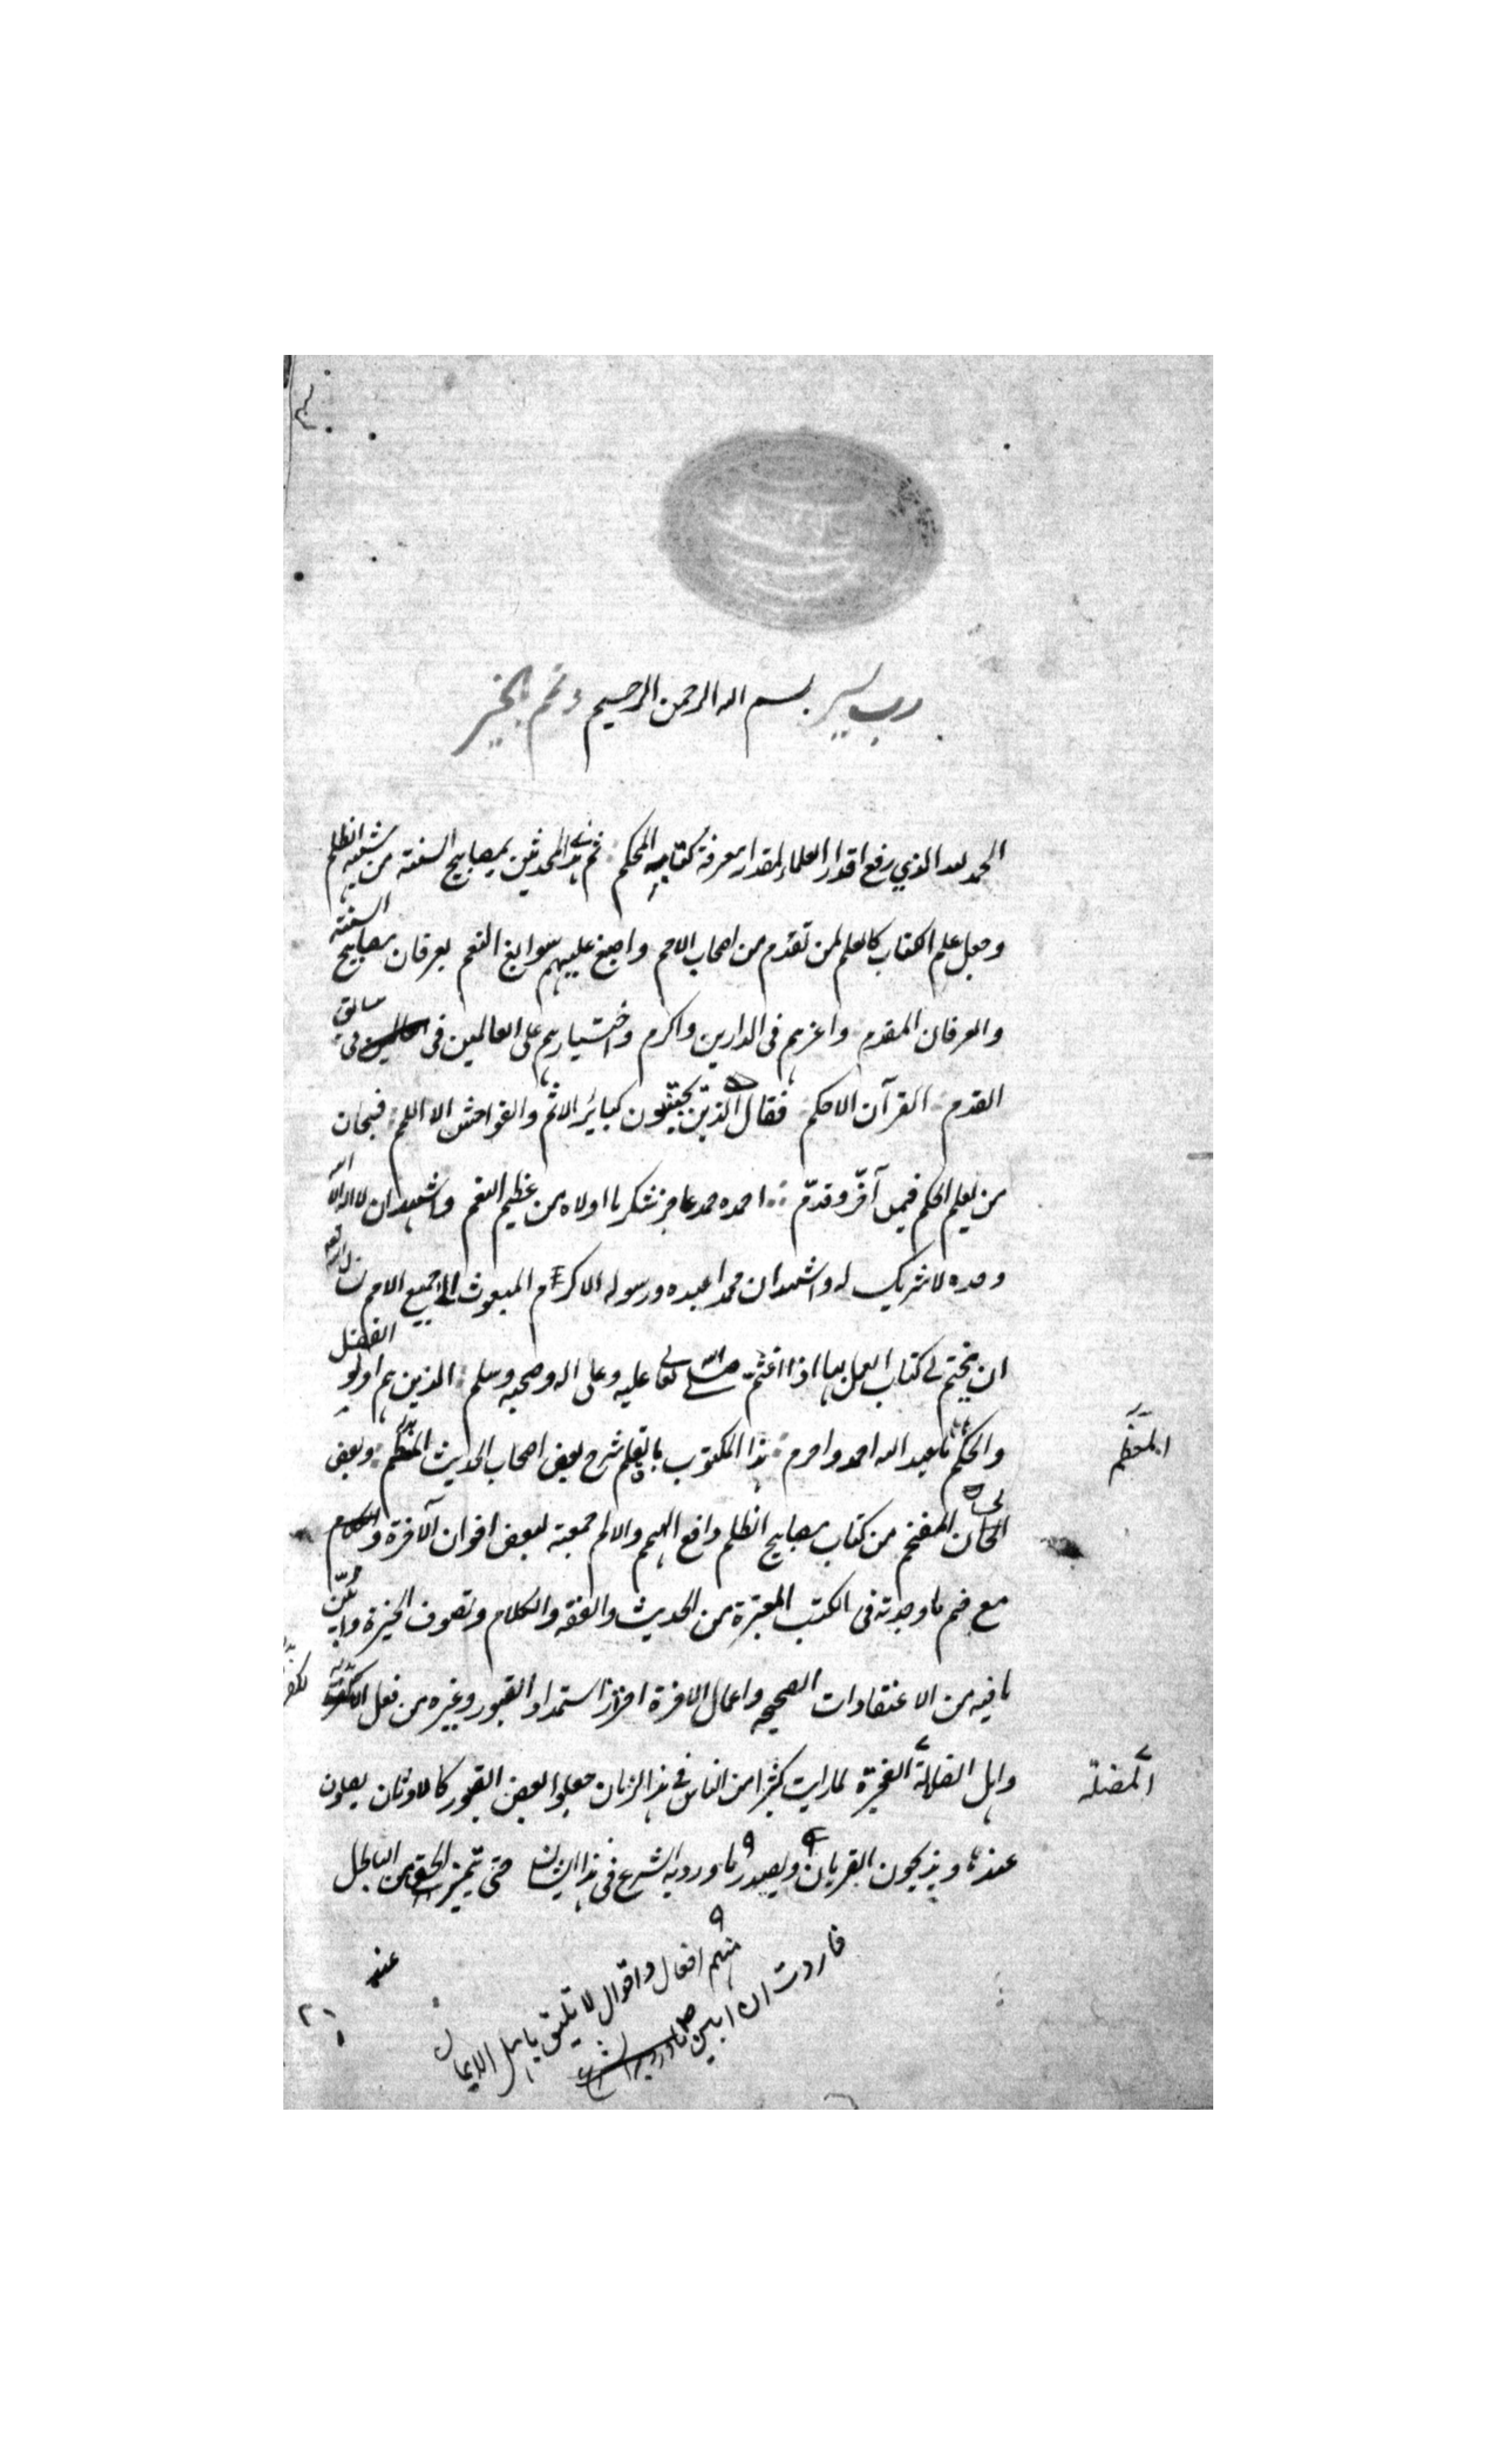 رب يسر بسم الله الرحمن الرحيم وتمم بالخير
الحمد لله الذي رفع اقدار العلماء بمقدار معرفة كتابه المحكم ثم هدى المحدثين بمصابيح السنة من شبه الظلم
وجعل علم الكتاب كالعلم لمن تقدم من اصحاب الامم واصبغ عليهم سوابغ النعم بعرفان مصابيح السنة
والعرفان المقدم واعزهم فى الدارين واكرم واختيارهم على العالمين فى سابق
القدم القرآن الاحكم فقال الذين يجتنبون كبائر الاثم والفواحش الا اللمم فسبحان
من يعلم الحكم فيمن آخر وقدم احمده حمد عاجز شكر ما اولاه من عظيم النعم واشهد ان لا اله الا الله
وحده لا شريك له واشهد ان محمدا عبده ورسوله الاكرم المبعوث الى جميع الامم
ان يختم لى كتاب العمل بها اذا اختتم صلى الله تعالى عليه وعلى اله وصحبه وسلم الذين هم اولو الفضل
والحكم ما بعبد الله احمد واحرم هذا المكتوب بالقلم شرح بعض اصحاب الحديث المعظم وبعض
المفخم من كتاب مصابيح الظلم دافع الهم والالم جمعته لبعض اخوان الآخرة
مع ضم ما وجدته فى الكتب المعتبرة من الحديث والفقه والكلام وتصوف الخيرة وابين
ما فيه من الاعتقادات الصحيحه واعمال الاخرة احترازا استمداد القبور وغيره من فعل
واهل الضلالة الفجرة لما رايت كثيرا من الناس فى هذا الزمان جعلوا بعض القبور كالاوثان يصلون
عندها ويذبحون القربان ويصدر ما ورد به الشرع فى هذا الشان حتى يتميز الحق من الباطل
منهم افعال واقوال لا تليق باهل الايمان
فاردت ان ابين
عند
المعظم
المضلة